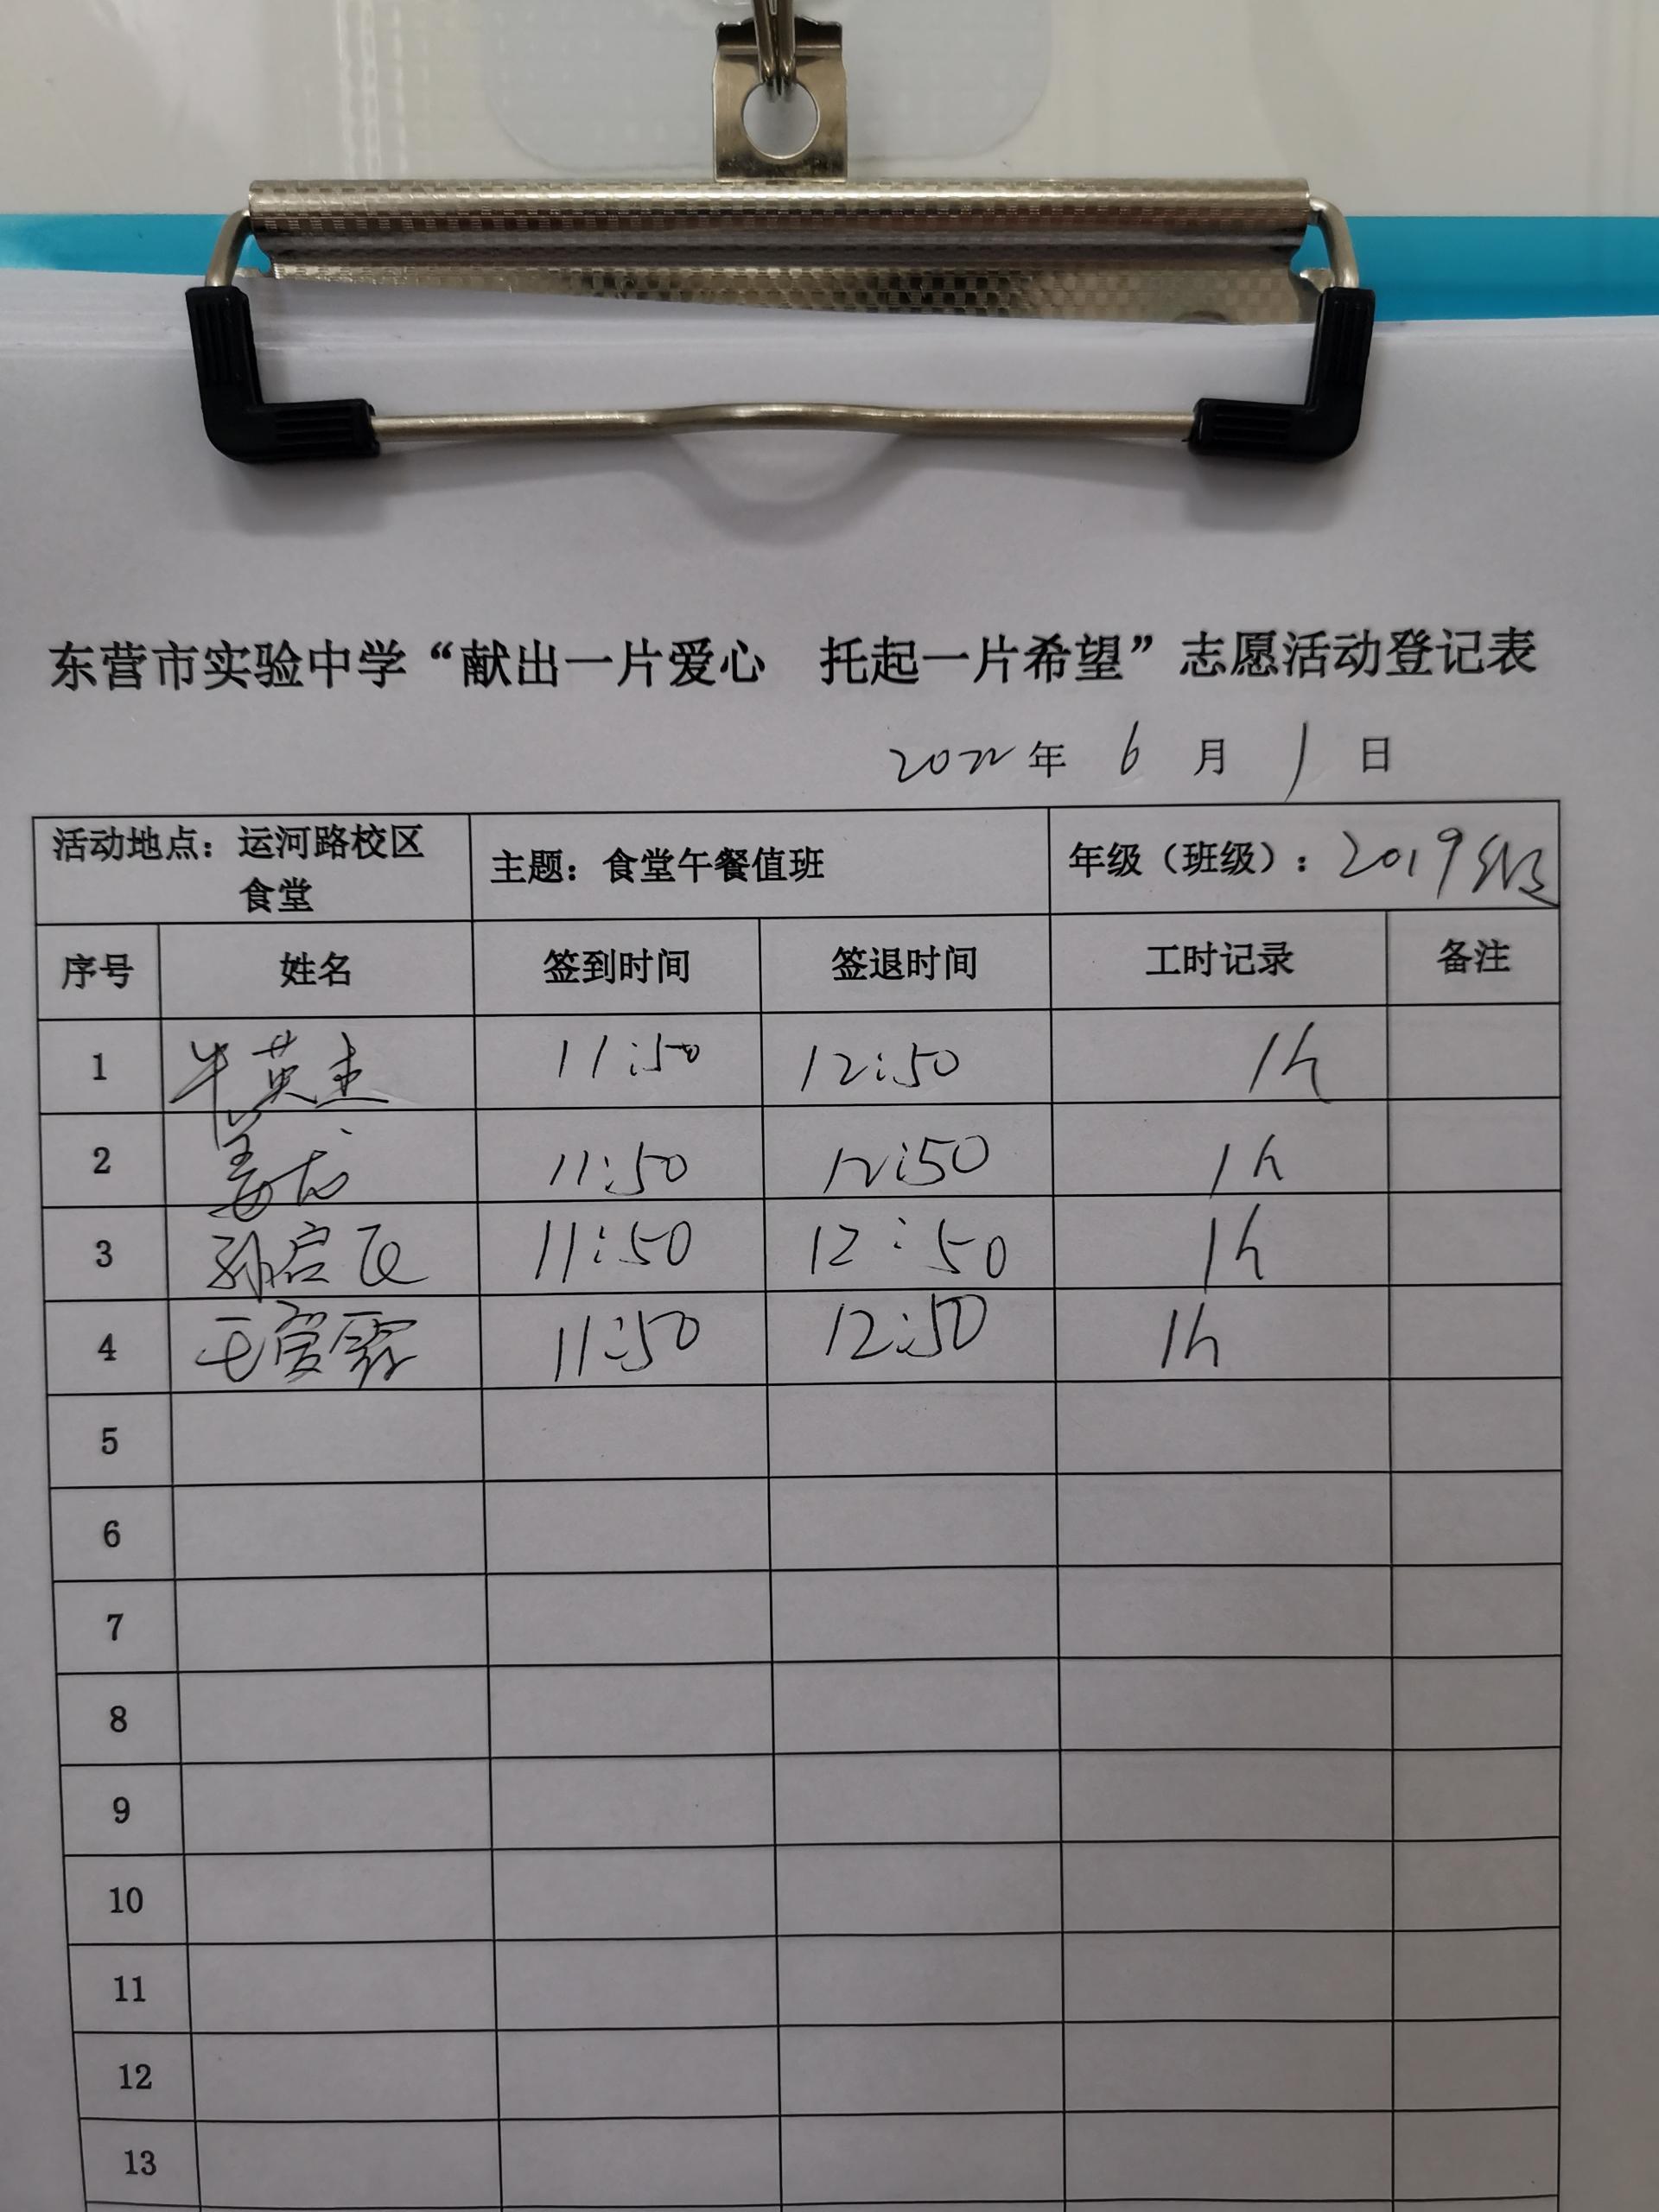 东营市实验中学“献出一片爱心 托起一片希望”志愿活动登记表
2022年 6 月 1 日
活动地点：运河路校区食堂 主题：食堂午餐值班 年级（班级）：2019级
序号 姓名 签到时间 签退时间 工时记录 备注
1 牛英杰 11:50 12:50 1h
2 姜龙 11:50 12:50 1h
3 孙启飞 11:50 12:50 1h
4 王爱霞 11:50 12:50 1h
5
6
7
8
9
10
11
12
13